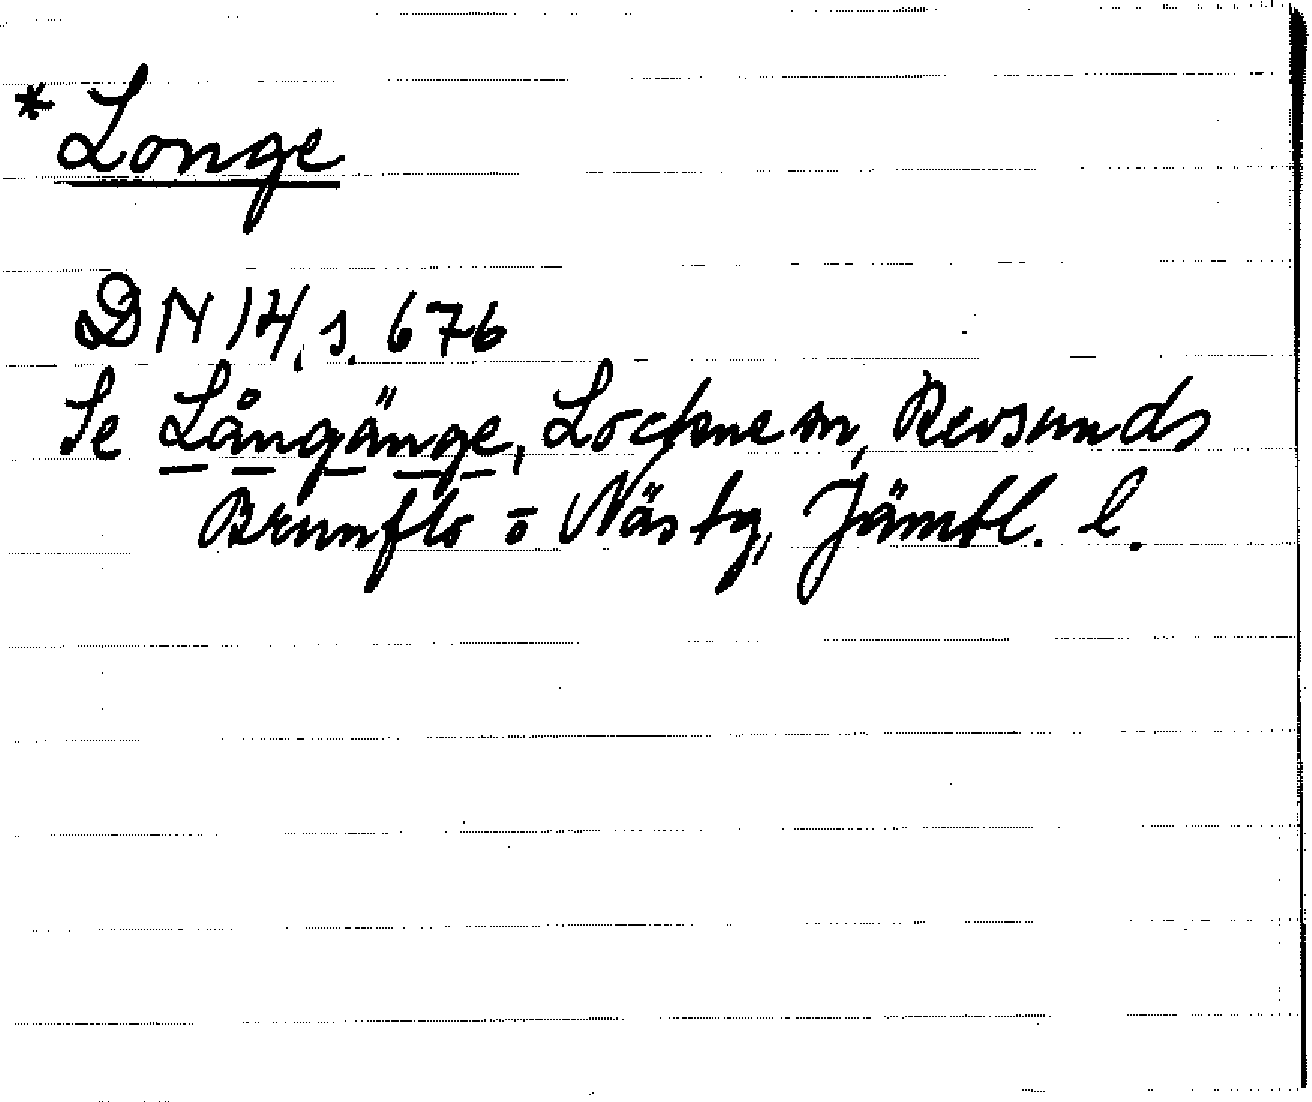 * Longe
DN 14, s. 676
Se Långänge, Lockne sn, Revsunds
Brunflo o Näs tg, Jämtl. l.